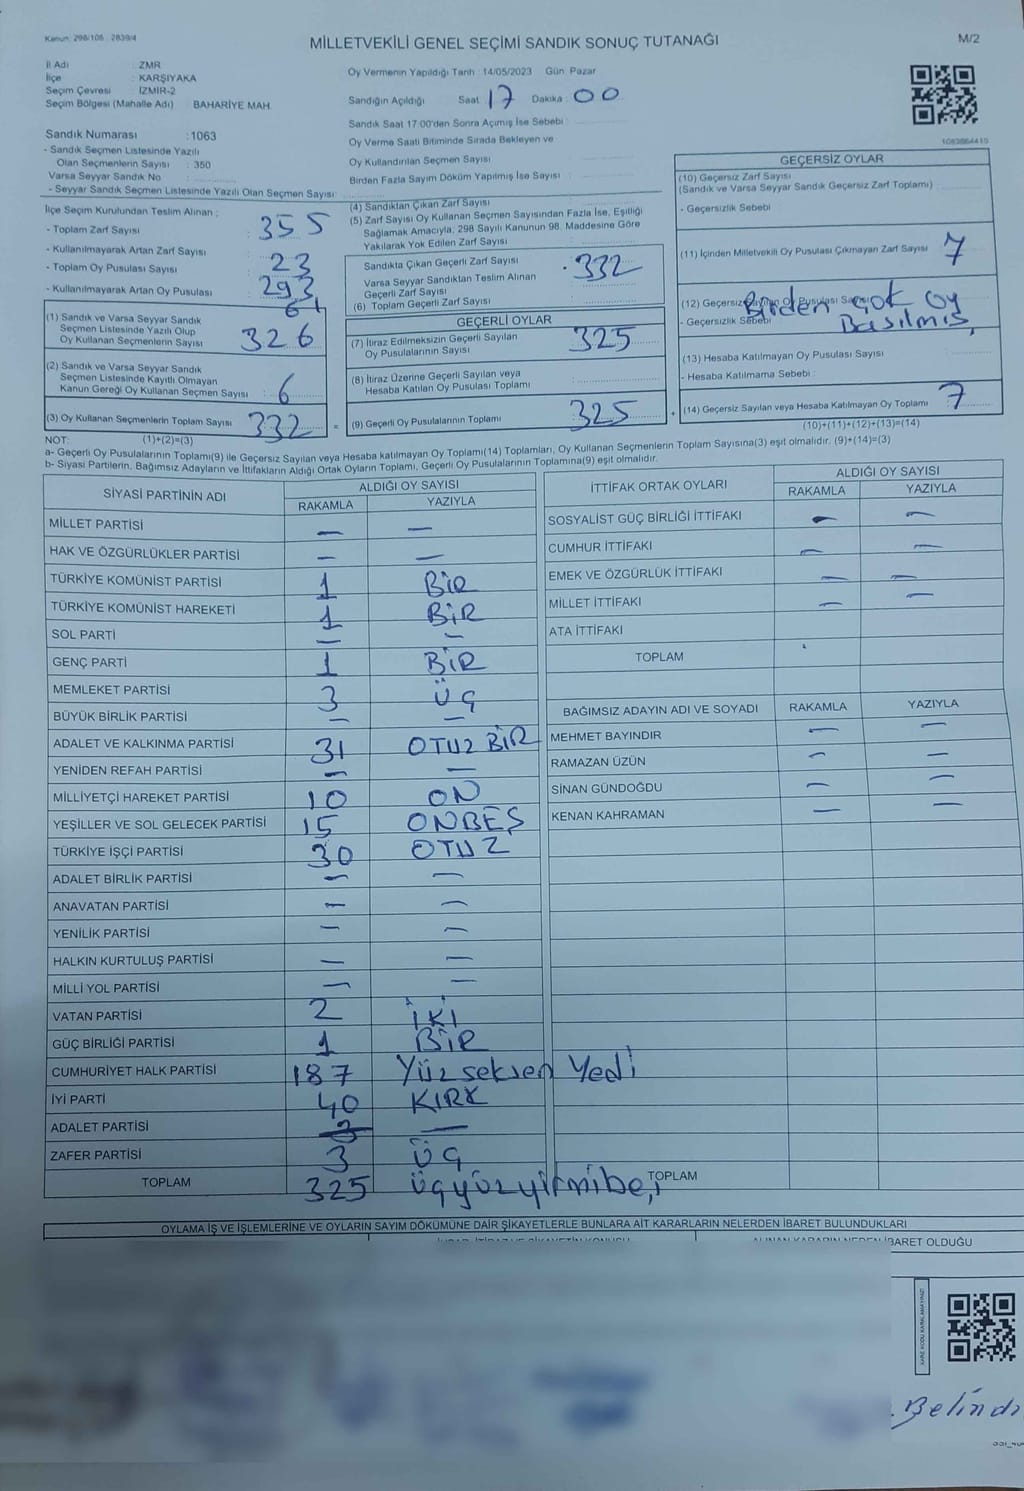 Kanun: 298/105 : 2839/4
MİLLETVEKİLİ GENEL SEÇİMİ SANDIK SONUÇ TUTANAĞI
M/2
İl Adı : ZMR
İlçe : KARŞIYAKA
Seçim Çevresi : İZMİR-2
Seçim Bölgesi (Mahalle Adı) BAHARİYE MAH.
Sandık Numarası : 1063
- Sandık Seçmen Listesinde Yazılı
Olan Seçmenlerin Sayısı : 350
Varsa Seyyar Sandık No
- Seyyar Sandık Seçmen Listesinde Yazılı Olan Seçmen Sayısı
Oy Vermenin Yapıldığı Tarih : 14/05/2023 Gün: Pazar
Sandığın Açıldığı Saat 17 Dakika 00
Sandık Saat 17:00'den Sonra Açılmış İse Sebebi
Oy Verme Saati Bitiminde Sırada Bekleyen ve
Oy Kullandırılan Seçmen Sayısı
Birden Fazla Sayım Döküm Yapılmış İse Sayısı
1083864410
İlçe Seçim Kurulundan Teslim Alınan :
- Toplam Zarf Sayısı 355
- Kullanılmayarak Artan Zarf Sayısı 23
- Toplam Oy Pusulası Sayısı 293
- Kullanılmayarak Artan Oy Pusulası 61
(1) Sandık ve Varsa Seyyar Sandık
Seçmen Listesinde Yazılı Olup
Oy Kullanan Seçmenlerin Sayısı 326
(2) Sandık ve Varsa Seyyar Sandık
Seçmen Listesinde Kayıtlı Olmayan
Kanun Gereği Oy Kullanan Seçmen Sayısı 6
(3) Oy Kullanan Seçmenlerin Toplam Sayısı 332
(4) Sandıktan Çıkan Zarf Sayısı
(5) Zarf Sayısı Oy Kullanan Seçmen Sayısından Fazla İse, Eşitliği
Sağlamak Amacıyla, 298 Sayılı Kanunun 98. Maddesine Göre
Yakılarak Yok Edilen Zarf Sayısı
Sandıkta Çıkan Geçerli Zarf Sayısı 332
Varsa Seyyar Sandıktan Teslim Alınan
Geçerli Zarf Sayısı
(6) Toplam Geçerli Zarf Sayısı
GEÇERLİ OYLAR
(7) İtiraz Edilmeksizin Geçerli Sayılan
Oy Pusulalarının Sayısı 325
(8) İtiraz Üzerine Geçerli Sayılan veya
Hesaba Katılan Oy Pusulası Toplamı
= (9) Geçerli Oy Pusulalarının Toplamı 325
GEÇERSİZ OYLAR
(10) Geçersiz Zarf Sayısı
(Sandık ve Varsa Seyyar Sandık Geçersiz Zarf Toplamı)
- Geçersizlik Sebebi
(11) İçinden Milletvekili Oy Pusulası Çıkmayan Zarf Sayısı 7
(12) Geçersiz Sayılan Oy Pusulası Sayısı Birden çok oy
- Geçersizlik Sebebi Basılmış
(13) Hesaba Katılmayan Oy Pusulası Sayısı
- Hesaba Katılmama Sebebi
+ (14) Geçersiz Sayılan veya Hesaba Katılmayan Oy Toplamı 7
(10)+(11)+(12)+(13)=(14)
NOT: (1)+(2)=(3)
a- Geçerli Oy Pusulalarının Toplamı(9) ile Geçersiz Sayılan veya Hesaba katılmayan Oy Toplamı(14) Toplamları, Oy Kullanan Seçmenlerin Toplam Sayısına(3) eşit olmalıdır. (9)+(14)=(3)
b- Siyasi Partilerin, Bağımsız Adayların ve İttifakların Aldığı Ortak Oyların Toplamı, Geçerli Oy Pusulalarının Toplamına(9) eşit olmalıdır.
SİYASİ PARTİNİN ADI
ALDIĞI OY SAYISI
RAKAMLA YAZIYLA
MİLLET PARTİSİ — —
HAK VE ÖZGÜRLÜKLER PARTİSİ — —
TÜRKİYE KOMÜNİST PARTİSİ 1 BİR
TÜRKİYE KOMÜNİST HAREKETİ 1 BİR
SOL PARTİ — —
GENÇ PARTİ 1 BİR
MEMLEKET PARTİSİ 3 ÜÇ
BÜYÜK BİRLİK PARTİSİ — —
ADALET VE KALKINMA PARTİSİ 31 OTUZ BİR
YENİDEN REFAH PARTİSİ — —
MİLLİYETÇİ HAREKET PARTİSİ 10 ON
YEŞİLLER VE SOL GELECEK PARTİSİ 15 ONBEŞ
TÜRKİYE İŞÇİ PARTİSİ 30 OTUZ
ADALET BİRLİK PARTİSİ — —
ANAVATAN PARTİSİ — —
YENİLİK PARTİSİ — —
HALKIN KURTULUŞ PARTİSİ — —
MİLLİ YOL PARTİSİ — —
VATAN PARTİSİ 2 İKİ
GÜÇ BİRLİĞİ PARTİSİ 1 BİR
CUMHURİYET HALK PARTİSİ 187 Yüz seksen Yedi
İYİ PARTİ 40 KIRK
ADALET PARTİSİ — —
ZAFER PARTİSİ 3 ÜÇ
TOPLAM 325 üçyüzyirmibeş
İTTİFAK ORTAK OYLARI
ALDIĞI OY SAYISI
RAKAMLA YAZIYLA
SOSYALİST GÜÇ BİRLİĞİ İTTİFAKI — —
CUMHUR İTTİFAKI — —
EMEK VE ÖZGÜRLÜK İTTİFAKI — —
MİLLET İTTİFAKI — —
ATA İTTİFAKI
TOPLAM
BAĞIMSIZ ADAYIN ADI VE SOYADI RAKAMLA YAZIYLA
MEHMET BAYINDIR — —
RAMAZAN ÜZÜN — —
SİNAN GÜNDOĞDU — —
KENAN KAHRAMAN — —
TOPLAM
OYLAMA İŞ VE İŞLEMLERİNE VE OYLARIN SAYIM DÖKÜMÜNE DAİR ŞİKAYETLERLE BUNLARA AİT KARARLARIN NELERDEN İBARET BULUNDUKLARI
ALINAN KARARIN NEDEN İBARET OLDUĞU
KARE KODU KARALAMAYINIZ!